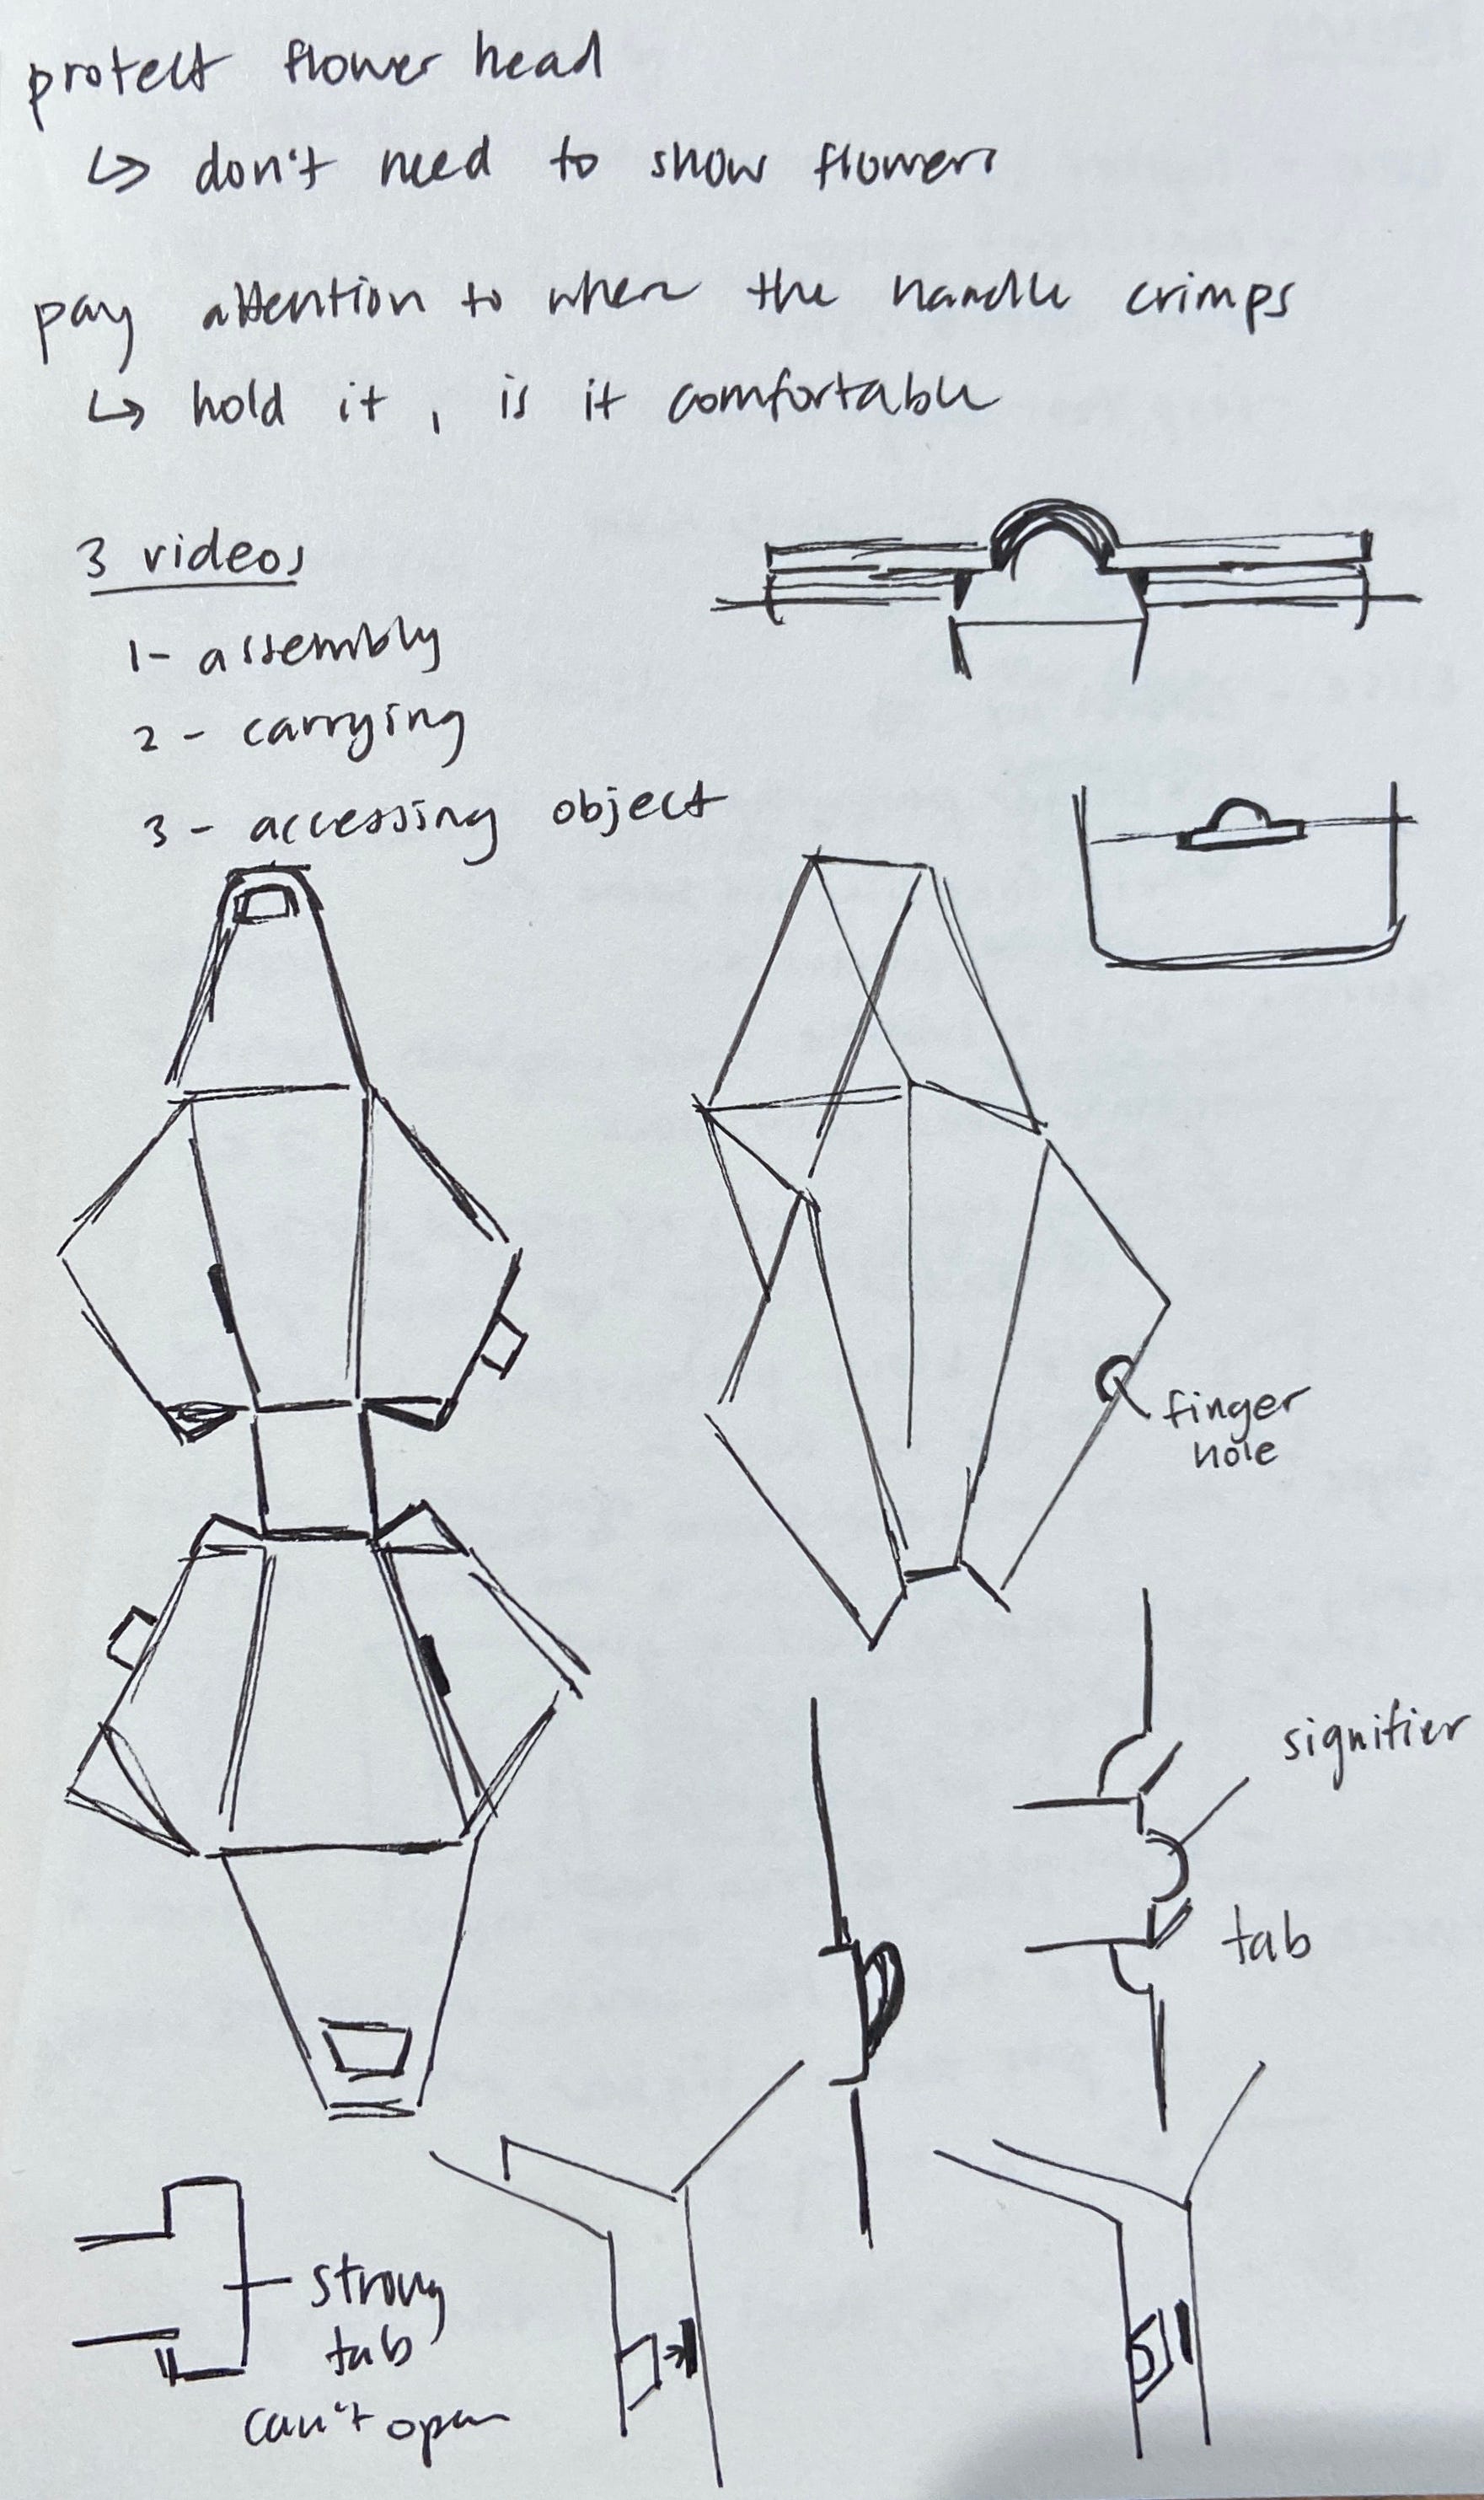 protect flower head
↳ don't need to show flowers
pay attention to where the handle crimps
↳ hold it, is it comfortable
3 videos
1- assembly
2- carrying
3- accessing object
finger
hole
signifier
tab
strong
tab
can't open